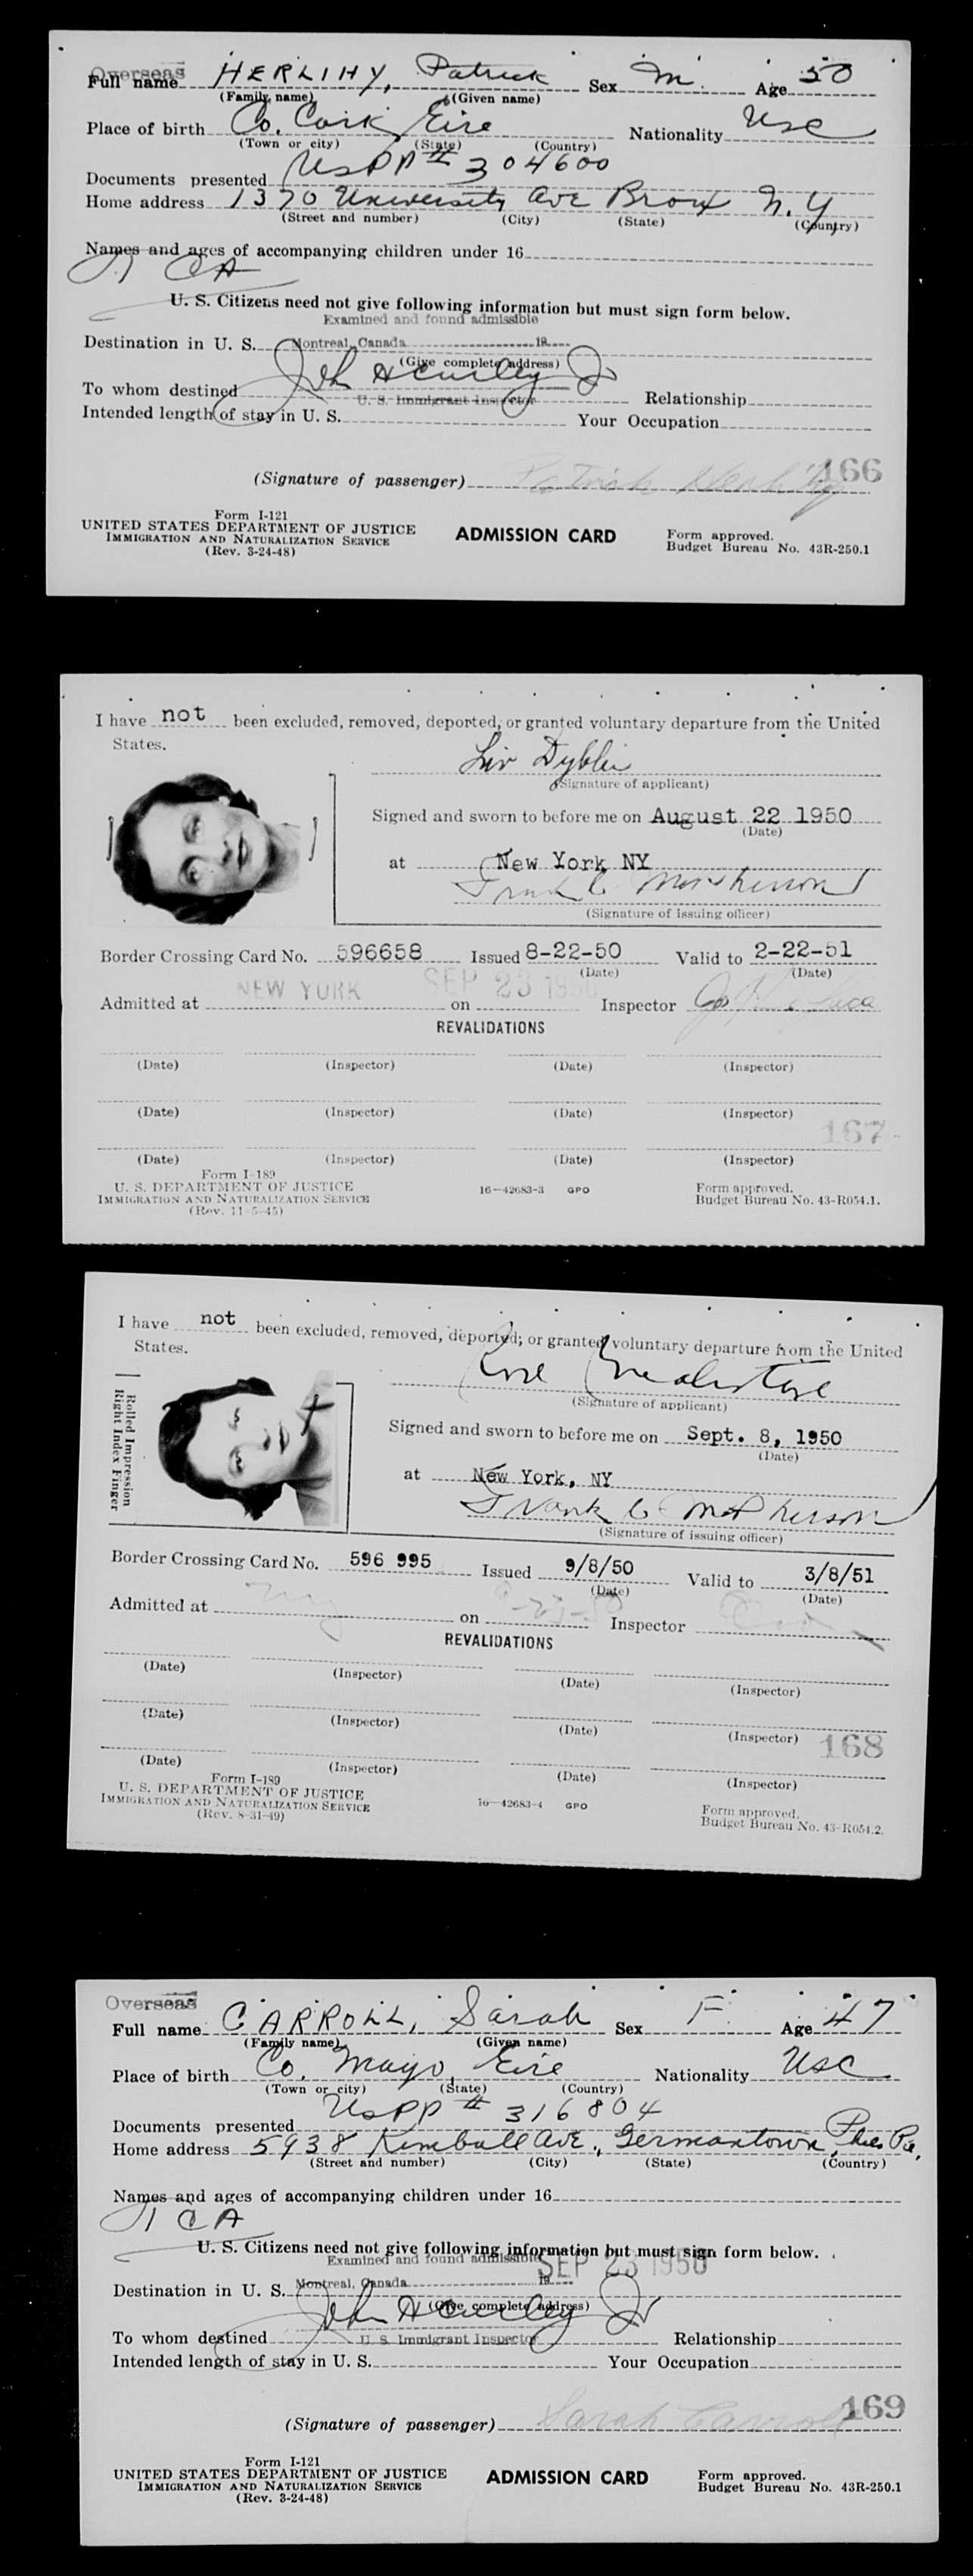 Overseas
Full name HERLIHY, Patrick Sex M. Age 50
(Family name) (Given name)
Place of birth Co. Cork Eire Nationality USC
(Town or city) (State) (Country)
Documents presented USPP # 304600
Home address 1370 University Ave Bronx N.Y
(Street and number) (City) (State) (Country)
Names and ages of accompanying children under 16
CA
U. S. Citizens need not give following information but must sign form below.
Examined and found admissible
Destination in U. S. Montreal, Canada 19
(Give complete address)
John Hurley Jr
To whom destined U. S. Immigrant Inspector Relationship
Intended length of stay in U. S. Your Occupation
166
(Signature of passenger) Patrick Herlihy
Form I-121
UNITED STATES DEPARTMENT OF JUSTICE
IMMIGRATION AND NATURALIZATION SERVICE
(Rev. 3-24-48)
ADMISSION CARD
Form approved.
Budget Bureau No. 43R-250.1
I have not been excluded, removed, deported, or granted voluntary departure from the United
States.
Liv Dyblie
(Signature of applicant)
Signed and sworn to before me on August 22 1950
(Date)
at New York NY
Frank C McPherson
(Signature of issuing officer)
Border Crossing Card No. 596658 Issued 8-22-50 Valid to 2-22-51
(Date) (Date)
Admitted at NEW YORK on SEP 23 1950 Inspector
REVALIDATIONS
(Date) (Inspector) (Date) (Inspector)
(Date) (Inspector) (Date) (Inspector)
167
(Date) (Inspector) (Date) (Inspector)
Form I-189
U. S. DEPARTMENT OF JUSTICE
IMMIGRATION AND NATURALIZATION SERVICE
(Rev. 11-5-45)
16—42683-3 GPO
Form approved.
Budget Bureau No. 43-R054.1.
I have not been excluded, removed, deported, or granted voluntary departure from the United
States.
(Signature of applicant)
Rolled Impression
Right Index Finger
Signed and sworn to before me on Sept. 8, 1950
(Date)
at New York, NY
Frank C McPherson
(Signature of issuing officer)
Border Crossing Card No. 596 995 Issued 9/8/50 Valid to 3/8/51
(Date) (Date)
Admitted at NY on 9-23-50 Inspector
REVALIDATIONS
(Date) (Inspector) (Date) (Inspector)
(Date) (Inspector) (Date) (Inspector)
168
(Date) (Inspector) (Date) (Inspector)
Form I-189
U. S. DEPARTMENT OF JUSTICE
IMMIGRATION AND NATURALIZATION SERVICE
(Rev. 8-31-49)
16—42683-4 GPO
Form approved.
Budget Bureau No. 43-R054.2.
Overseas
Full name CARROLL, Sarah Sex F Age 47
(Family name) (Given name)
Place of birth Co. Mayo, Eire Nationality USC
(Town or city) (State) (Country)
Documents presented USPP # 316804
Home address 5938 Kimball Ave., Germantown, Phila Pa.
(Street and number) (City) (State) (Country)
Names and ages of accompanying children under 16
CA
U. S. Citizens need not give following information but must sign form below.
Examined and found admissible SEP 23 1950
Destination in U. S. Montreal, Canada 19
(Give complete address)
John Hurley Jr
To whom destined U. S. Immigrant Inspector Relationship
Intended length of stay in U. S. Your Occupation
169
(Signature of passenger) Sarah Carroll
Form I-121
UNITED STATES DEPARTMENT OF JUSTICE
IMMIGRATION AND NATURALIZATION SERVICE
(Rev. 3-24-48)
ADMISSION CARD
Form approved.
Budget Bureau No. 43R-250.1